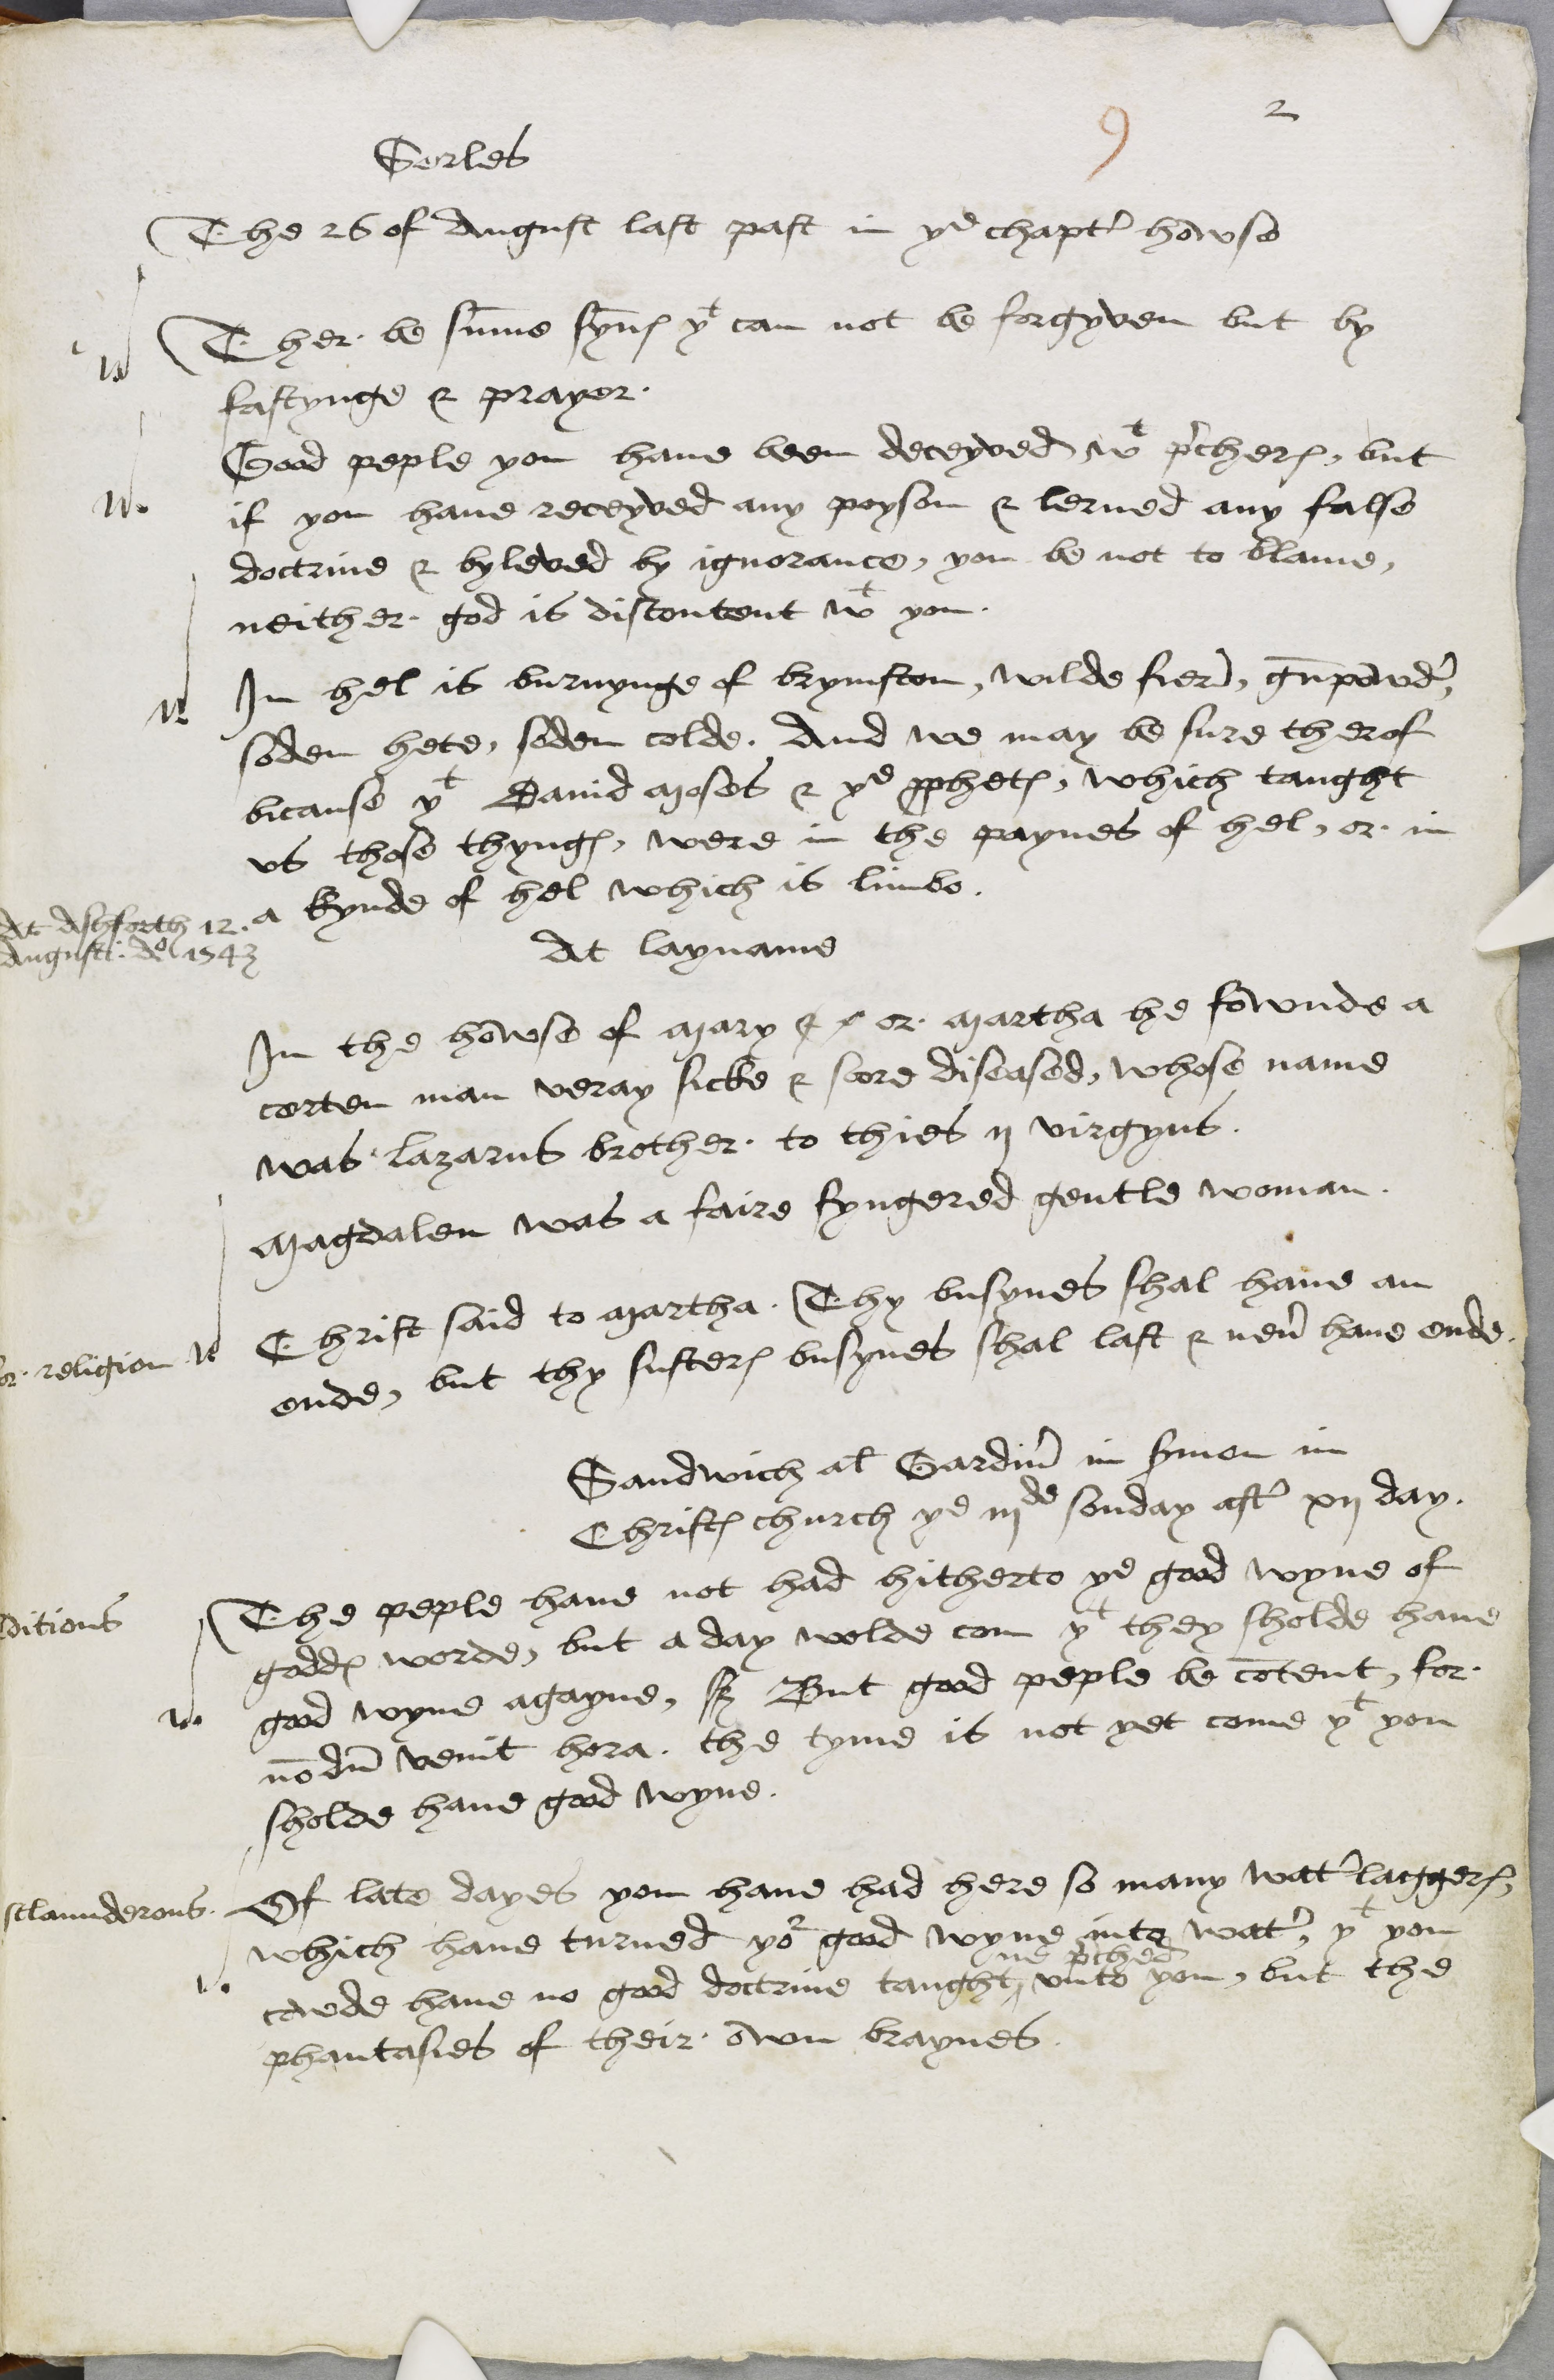 9 2
Serles
The 26 of August last past in yᵉ chaptʳ howse
Ther be sum̄e syn̄es yᵗ can not be forgyven but by
fastynge & prayer.
Good peple you haue been deceyved wᵗ p'chers, but
if you haue receyved any poyson & lerned any false
doctrine & byleved by ignorance, you be not to blame,
neither god is discontent wᵗ you.
In hel is burnynge of brymston, wilde fier, gūpowdʳ,
soden hete, soden colde. And we may be sure therof
bicause yᵗ Dauid Moses & yᵉ pphetes, which taught
vs those thynges, were in the paynes of hel, or in
a kynde of hel which is limbo.
At Ashforth 12.
Augusti. Aᵒ 1543
At laynams
In the howse of Mary & or Martha he fownde a
certen man veray sicke & soore diseased, whose name
was lazarus brother to thies ij virgyns.
Magdalen was a faire fyngered gentle woman.
or religion
Christ said to Martha. Thy busynes shal haue an
ende, but thy susters busynes shal last & neuʳ haue ende.
Sandwich al Gardinʳ in sʳmon in
Christes church yᵉ iijᵈᵉ sonday aftʳ xij day.
ditions
The peple haue not had hitherto yᵉ good wyne of
goddes worde, but a day wolde com yᵗ they sholde haue
good wyne agayne, But good peple be cōtent, for
nōdū venit hora. the tyme is not yet come yᵗ you
sholde haue good wyne.
sclaunderous.
Of late dayes you haue had here so many watʳ laggers,
which haue turned yoʳ good wyne into watʳ, yᵗ you
ne p'ched
cowde haue no good doctrine taught vnto you, but the
phantasies of their own braynes.